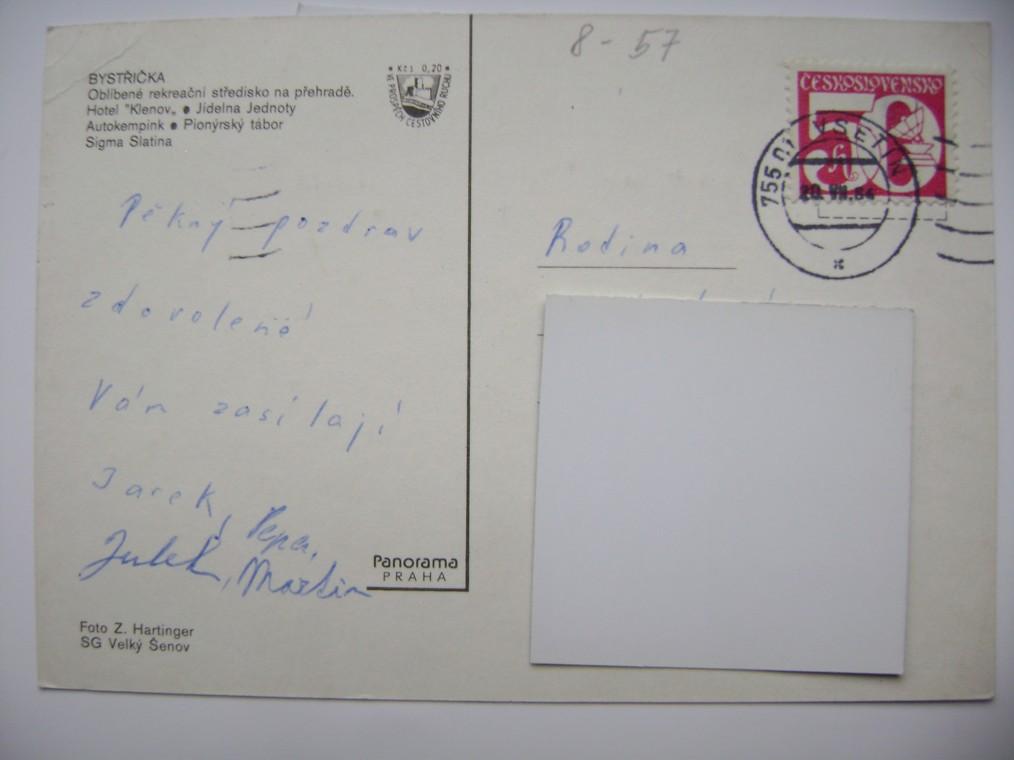 BYSTŘIČKA
Oblíbené rekreační středisko na přehradě.
Hotel "Klenov„ ● Jídelna Jednoty
Autokempink ● Pionýrský tábor
Sigma Slatina
* Kčs 0,20 *
VE PROSPĚCH CESTOVNÍHO RUCHU
Pěkný pozdrav
z dovolené
Vám zasílají
Jarek, Pepa,
Julek, Martin
Panorama
PRAHA
Foto Z. Hartinger
SG Velký Šenov
8 - 57
ČESKOSLOVENSKO
50 h
755 01 VSETÍN
20. VII. 84
Rodina